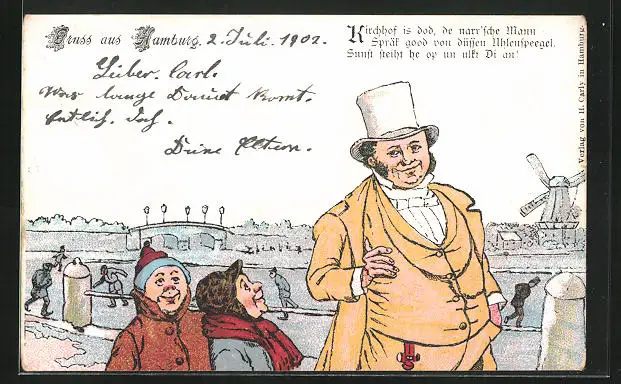 Gruss aus Hamburg. 2. Juli. 1902.
Kirchhof is dod, de narr'sche Mann
Spräk good von düssen Uhlenspeegel.
Sunst steiht he op un ulkt Di an!
Lieber. Carl.
Was lange Dauert komt.
Entlich. doch.
Deine Eltern.
Verlag von H. Carly in Hamburg.